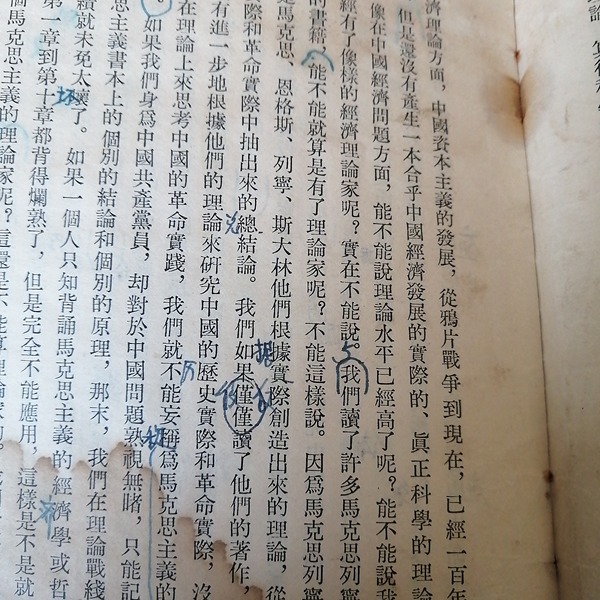 濟理論方面，中國資本主義的發展，從鴉片戰爭到現在，已經一百年
但是還沒有產生一本合乎中國經濟發展的實際的、眞正科學的理論
像在中國經濟問題方面，能不能說理論水平已經高了呢？能不能說我
經有了像樣的經濟理論家呢？實在不能說。我們讀了許多馬克思列寧
的書籍，能不能就算是有了理論家呢？不能這樣說。因爲馬克思列寧
是馬克思、恩格斯、列寧、斯大林他們根據實際創造出來的理論，從
際和革命實際中抽出來的總結論。我們如果僅僅讀了他們的著作，
有進一步地根據他們的理論來研究中國的歷史實際和革命實際，沒
在理論上來思考中國的革命實踐，我們就不能妄稱爲馬克思主義的
。如果我們身爲中國共產黨員，却對於中國問題熟視無睹，只能記
思主義書本上的個別的結論和個別的原理，那末，我們在理論戰綫
績就未免太壞了。如果一個人只知背誦馬克思主義的經濟學或哲
第一章到第十章都背得爛熟了，但是完全不能應用，這樣是不是就
個馬克思主義的理論家呢？這還是不能算理論家的。
据
历
称
坏
济